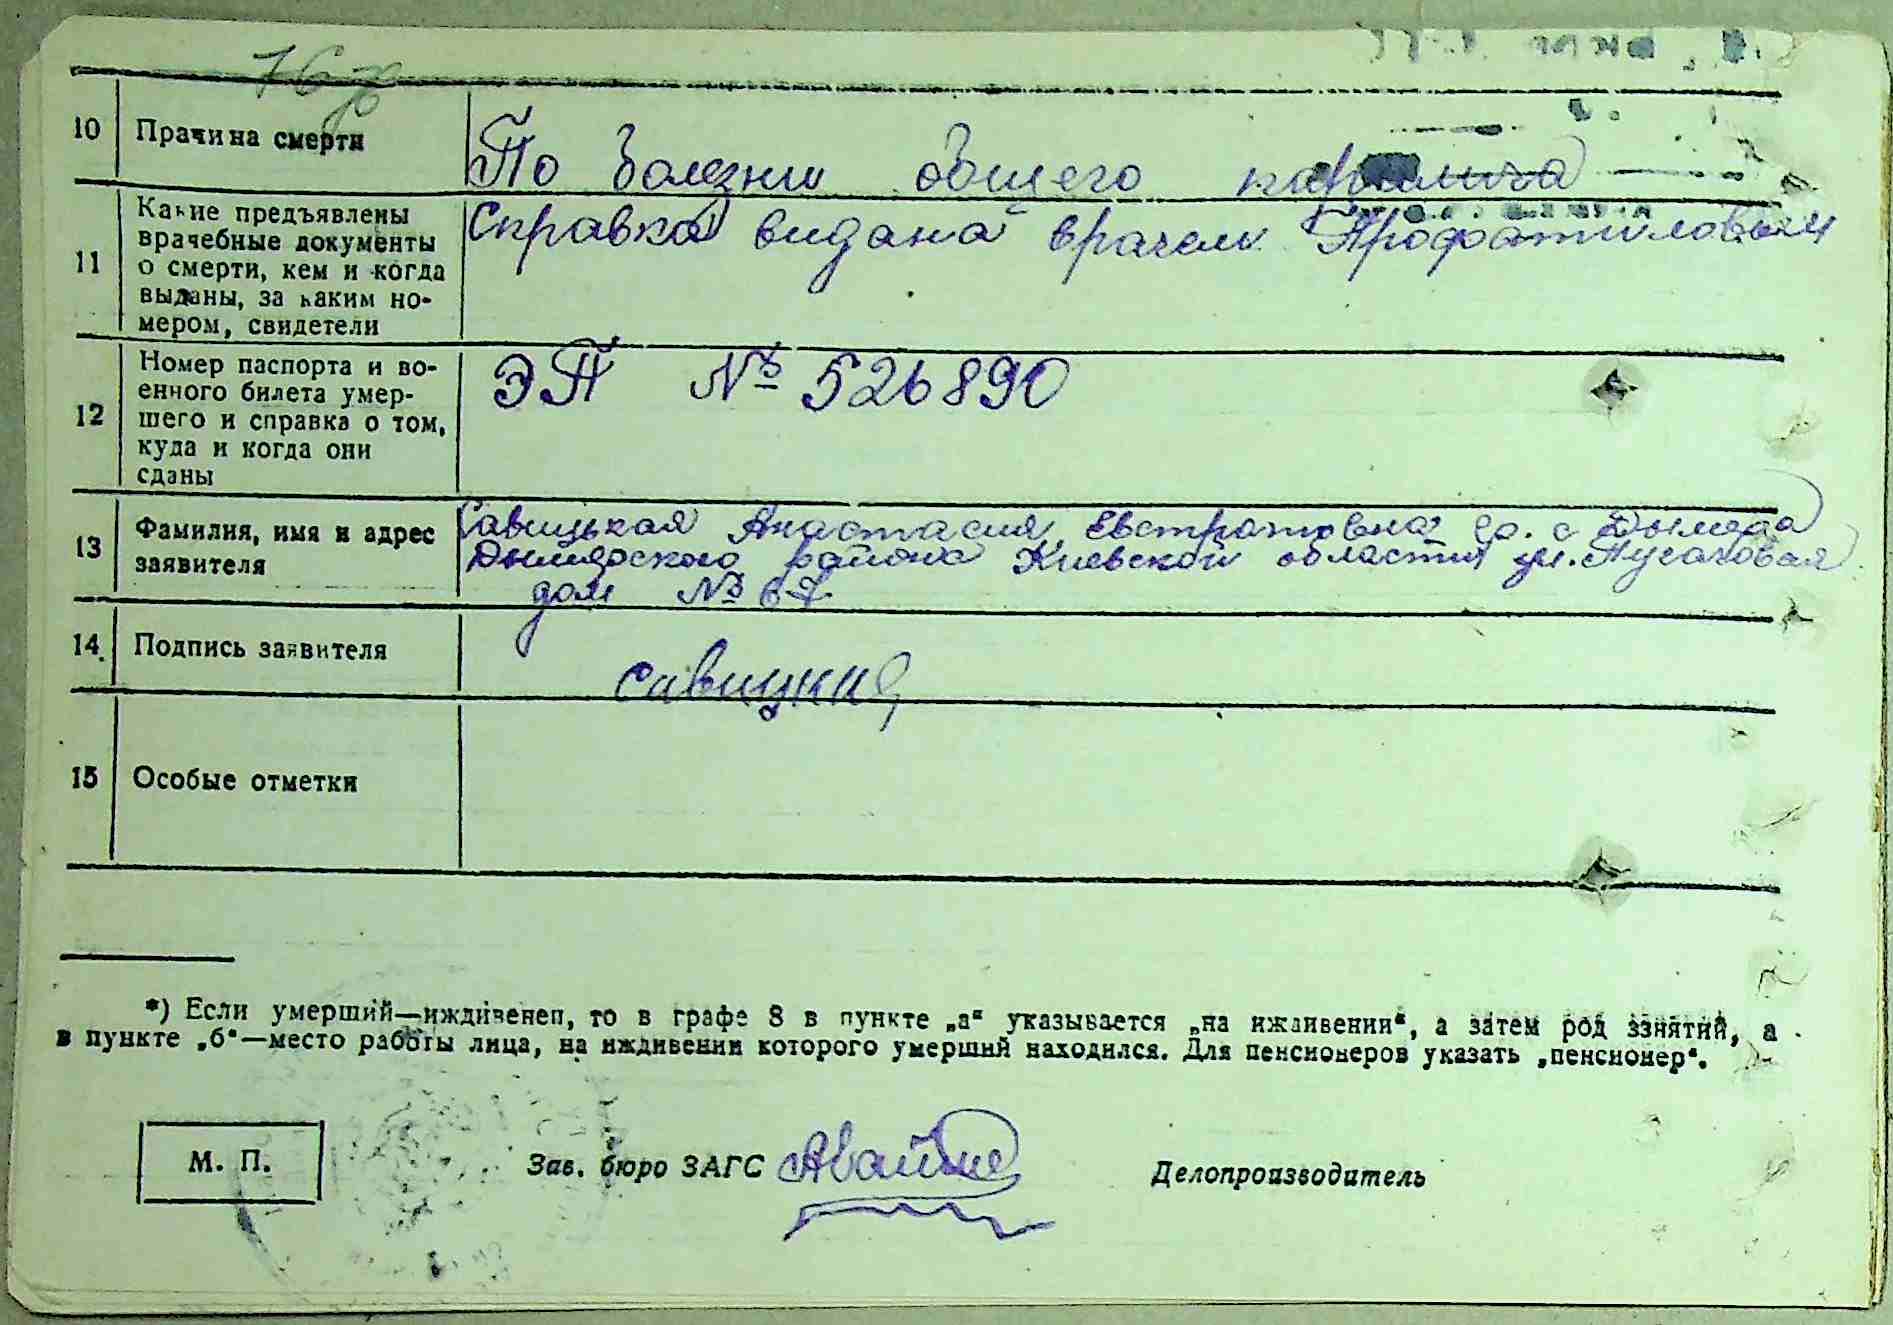 10 Прачина смерти
По болезни общего паралича
11 Какие предъявлены
врачебные документы
о смерти, кем и когда
выданы, за каким но-
мером, свидетели
Справка видана врачем
12 Номер паспорта и во-
енного билета умер-
шего и справка о том,
куда и когда они
сданы
ЭТ № 526890
13 Фамилия, имя и адрес
заявителя
Савицькая Анастасия Евстратовна с. Дымера
Дымерского района Киевской области ул. Пугачовая
дом № 67
14. Подпись заявителя
Савицкая
15 Особые отметки
*) Если умерший—иждивенец, то в графе 8 в пункте „а“ указывается „на иждивении“, а затем род занятий, а
в пункте „б“—место работы лица, на иждивении которого умерший находился. Для пенсионеров указать „пенсионер“.
М. П.
Зав. бюро ЗАГС
Делопроизводитель